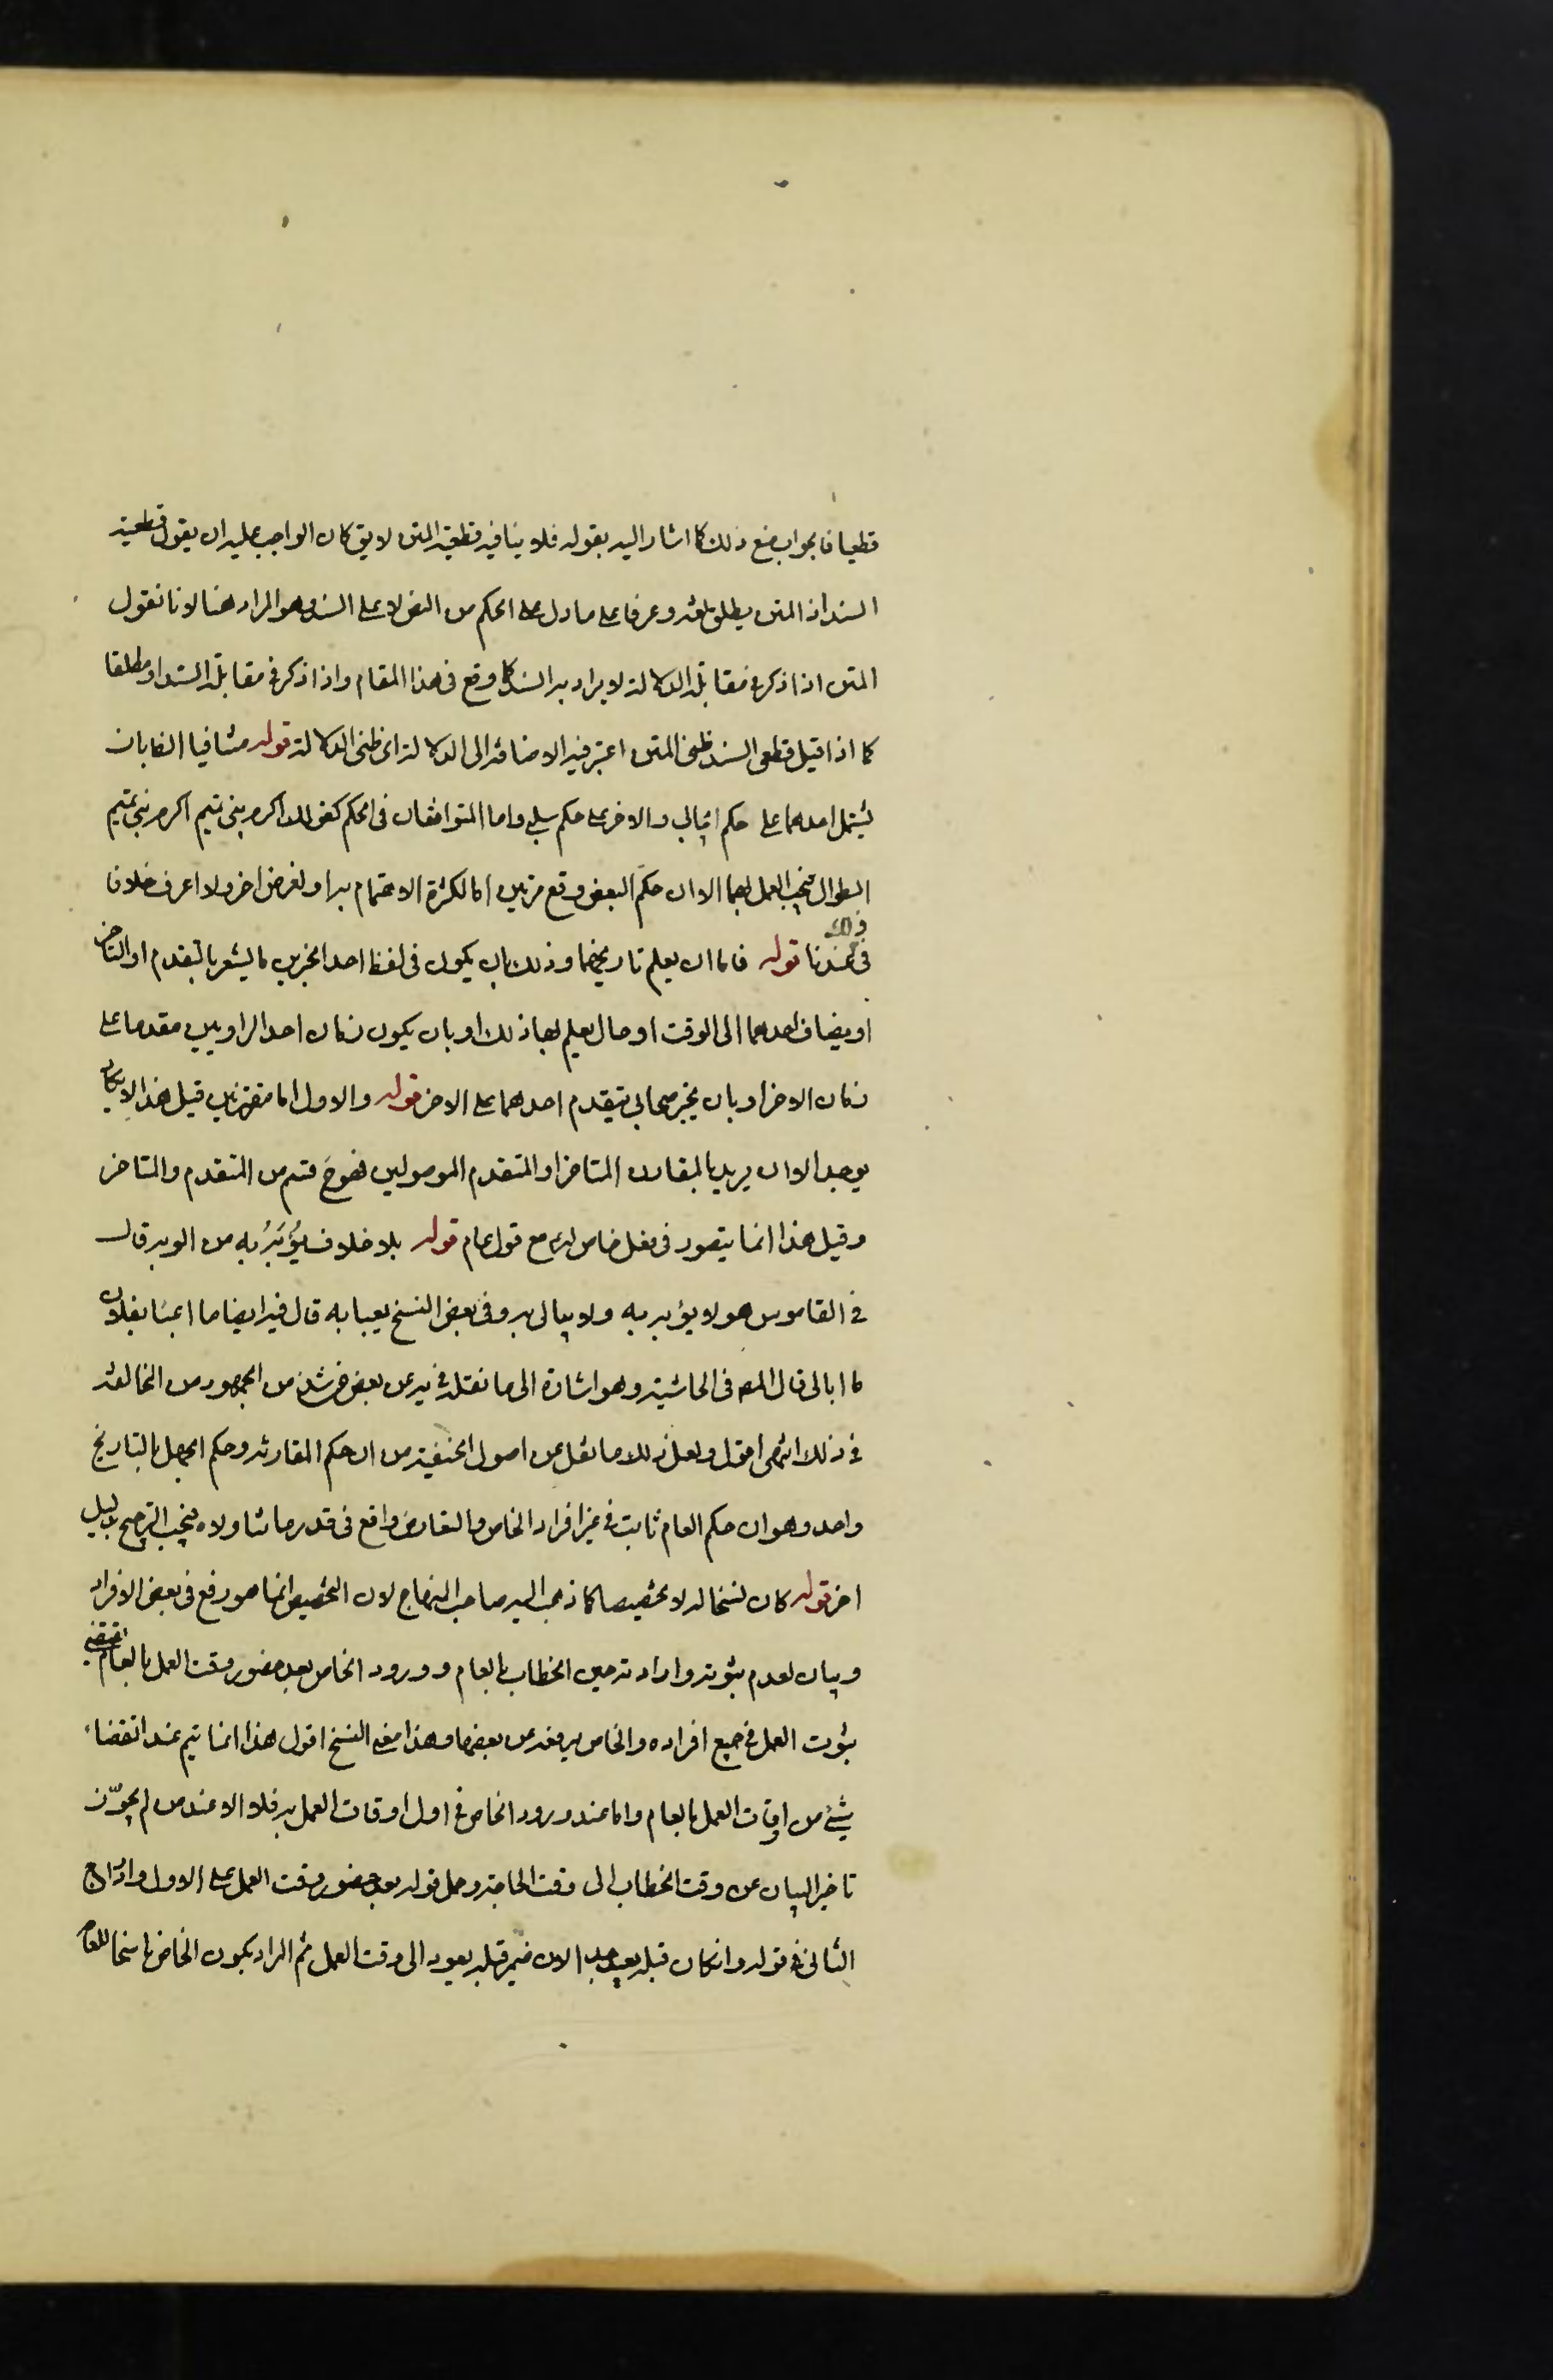 قطعيا فالجواب منع ذلك كما اشار اليه بقوله فلا ينافيه قطعية المتن لا يق كان الواجب عليه ان يقول قطعية
السند اذ المتن يطلق لغة وعرفا على ما دل على الحكم من النص لا على السند وهو المراد هنا لانا نقول
المتن اذا ذكر في مقابلة الدلالة لا يراد به السند كما وقع في هذا المقام واذا ذكر في مقابلة السند او مطلقا
كما اذا قيل قطعى السند ظنى المتن اعتبر فيه الاضافة الى الدلالة اى ظنى الدلالة قوله متنافيا الظ بان
يشتمل احدهما على حكم ايجابى والاخر على حكم سلبى واما المتوافقان في الحكم كقولك اكرم بنى تميم اكرم بنى تميم
الطوال فيجب العمل بهما الا ان حكم البعض وقع مرتين اما لكثرة الاهتمام به او لغرض اخر ولا اعرف خلافا
في ذلك عندنا قوله فاما ان يعلم تاريخهما وذلك بان يكون في لفظ احد الخبرين ما يشعر بالتقدم او التاخر
او يضاف احدهما الى الوقت او حال يعلم بها ذلك او بان يكون زمان احد الراويين مقدما على
زمان الاخر او بان يخبر صحابى بتقدم احدهما على الاخر قوله والاول اما مقترنين قيل هذا لا يكاد
يوجد الا ان يريد بالمقارن المتاخر او المتقدم الموصولين فهو ح قسم من المتقدم والمتاخر
وقيل هذا انما يتصور في فعل خاص له مع قول عام قوله بلا خلاف يؤبر به من الوبر قال
في القاموس هو لا يؤبر به ولا يبالى به وفي بعض النسخ يعبا به قال فيه ايضا ما اعبا بفلان
ما ابالى قال المص في الحاشية وهو اشارة الى ما نقله في يه عن بعض من شذ من الجمهور من المخالفة
في ذلك انتهى اقول ولعل ذلك ما نقل عن اصول الحنفية من ان حكم المقارنة وحكم الجهل بالتاريخ
واحد وهو ان حكم العام ثابت في غير افراد الخاص والتعارض واقع في قدر ما تناولاه فيجب الترجيح بدليل
اخر قوله كان نسخا له لا تخصيصا كما ذهب اليه صاحب المنهاج لان التخصيص انما هو رفع في بعض الافراد
وبيان لعدم ثبوته وارادته حين الخطاب بالعام وورود الخاص بعد حضور وقت العمل بالعام يقتضى
ثبوت العمل في جميع افراده والخاص يرفعه عن بعضها وهذا معنى النسخ اقول هذا انما يتم عند انقضاء
شئ من اوقات العمل بالعام واما عند ورود الخاص في اول اوقات العمل به فلا الا عند من لم يجوز
تاخير البيان عن وقت الخطاب الى وقت الحاجة وحمل قوله بعد حضور وقت العمل على الاول وادراج
الثانى في قوله وان كان قبله بعيد جدا لان ضمير قبله يعود الى وقت العمل ثم المراد بكون الخاص ناسخا للعام